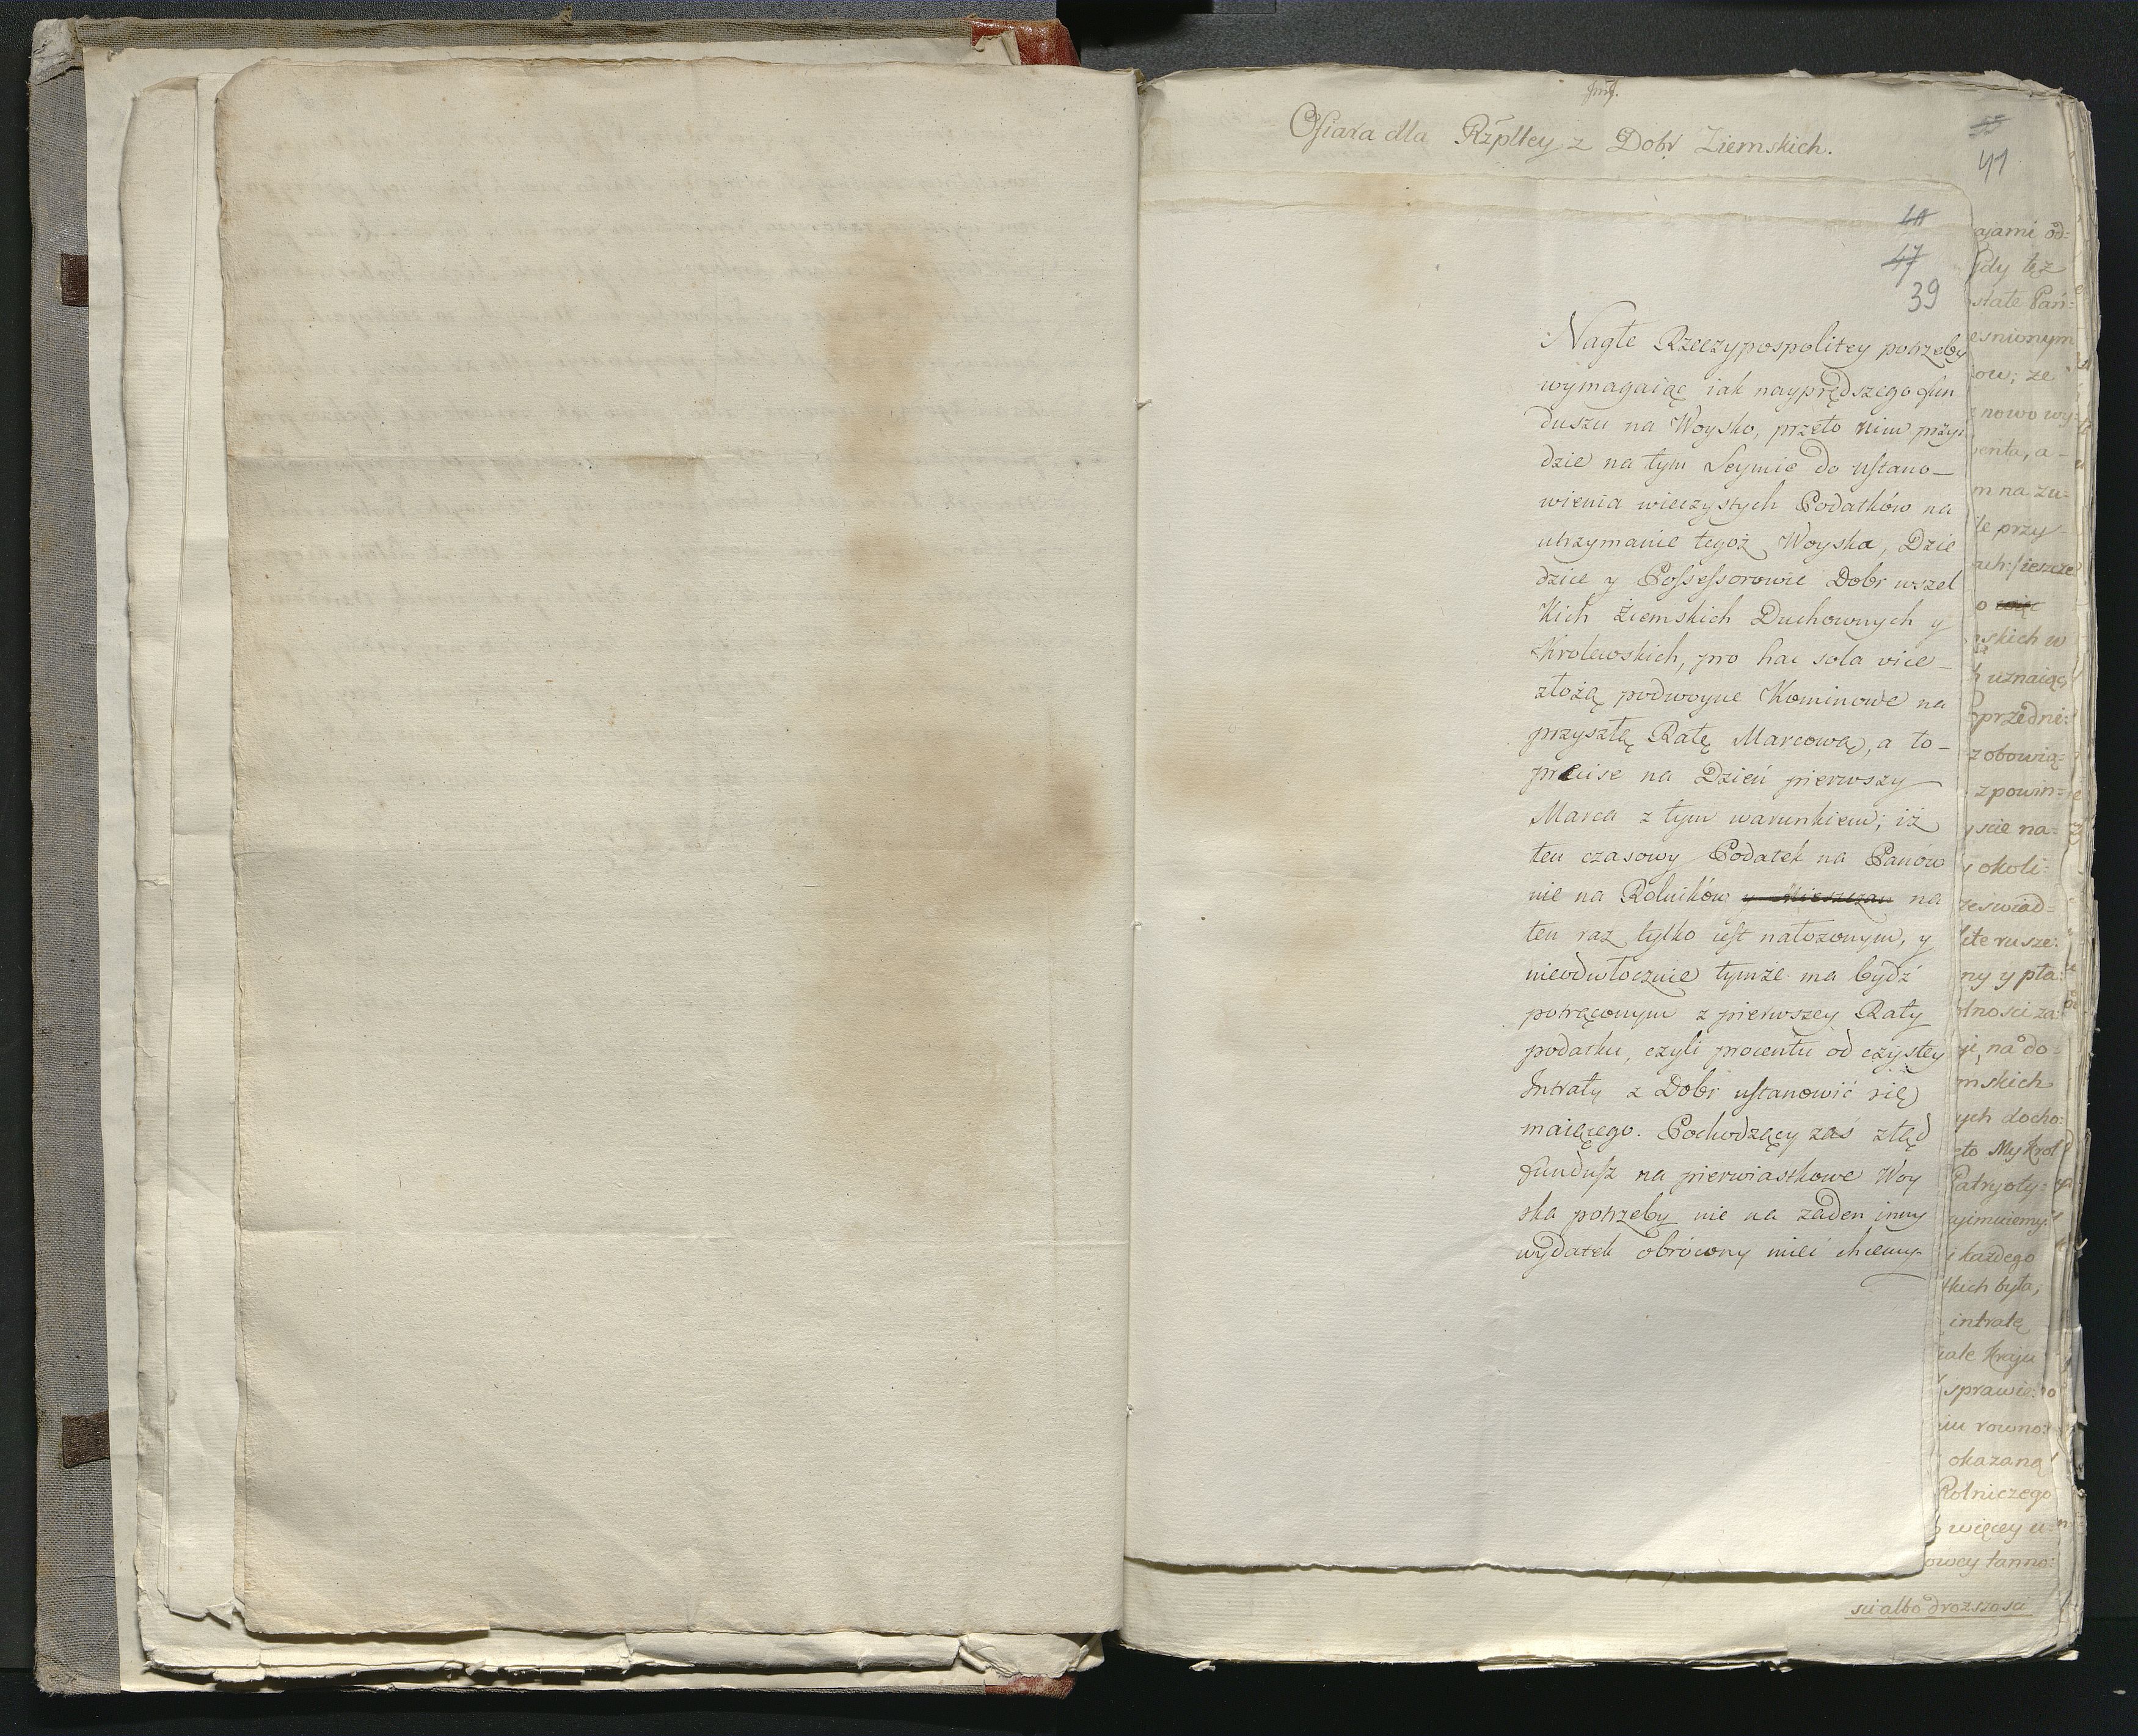 Ofiara dla Rżpltey z Dobr Ziemskich.
41
47
39
Nagłe Rzeczypospolitey potrzeby
wymagaiąc iak nayprędszego fun
duszu na Woysko, przeto nim przyi
dzie na tym Seymie do ustano-
wienia wieczystych Podatków na
utrzymanie tegoż Woyska, Dzie
dzice y Possessorowie Dobr wszel
kich Ziemskich Duchownych y
Krolewskich, pro hac sola vice-
złożą podwoyne Kominowe na
przyszłą Ratę Marcową, a to-
precise na Dzień pierwszy
Marca z tym warunkiem; iż
ten czasowy Podatek na Panów
nie na Rolników y Mieszczan na
ten raz tylko iest nałożonym, y
nieodwłocznie tymże ma bydź
potrąconym z pierwszey Raty
podatku, czyli procentu od czystey
Intraty z Dobr ustanowić się
maiącego. Pochodzący zaś ztąd
fundusz na pierwiastkowe Woy
ska potrzeby nie na żaden inny
wydatek obrócony mieć chcemy
ajami od=
gdy też
stałe Pań=
eśnionym
ow; że
nowo wy=
enta, a-
m na zu=
le przy-
ach: ieszcze
o
skich w
uznaiąc
przedni=
zobowią=
z powin=
ście na=
okoli=
zeświad=
ite rusze=
ny y pła=
lności za=
ie, na do=
mskich
ych docho=
eto My Krol
Patryoty=
yimuiemy
i każdego
tkich była,
intratę
iałe Kraju
sprawie=
iu rowno=
okazaną
Rolniczego
więcey u=
owey tanno=
ści albo drozszości